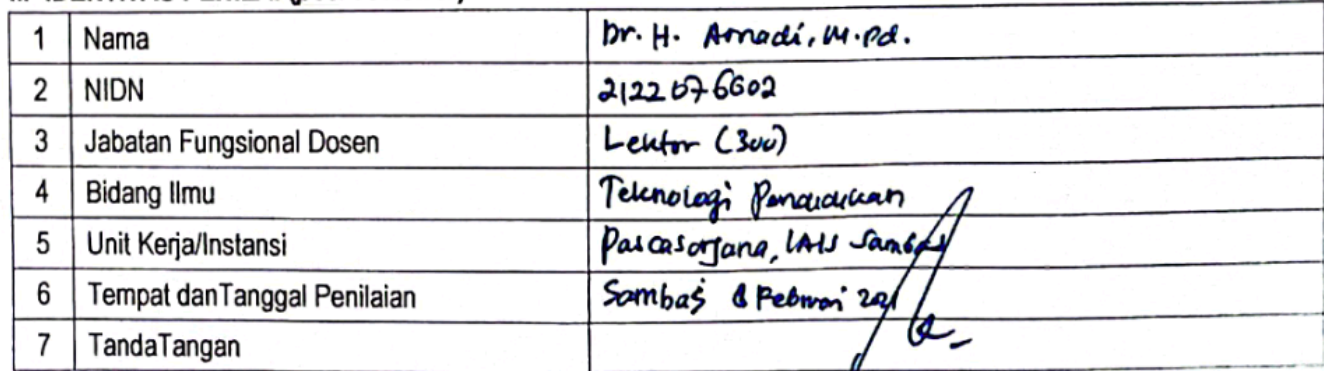 1 Nama Dr. H. Arnadi, M.Pd.
2 NIDN 2122076602
3 Jabatan Fungsional Dosen Lektor (300)
4 Bidang Ilmu Teknologi Pendidikan
5 Unit Kerja/Instansi Pascasarjana, IAIS Sambas
6 Tempat danTanggal Penilaian Sambas Februari
7 TandaTangan